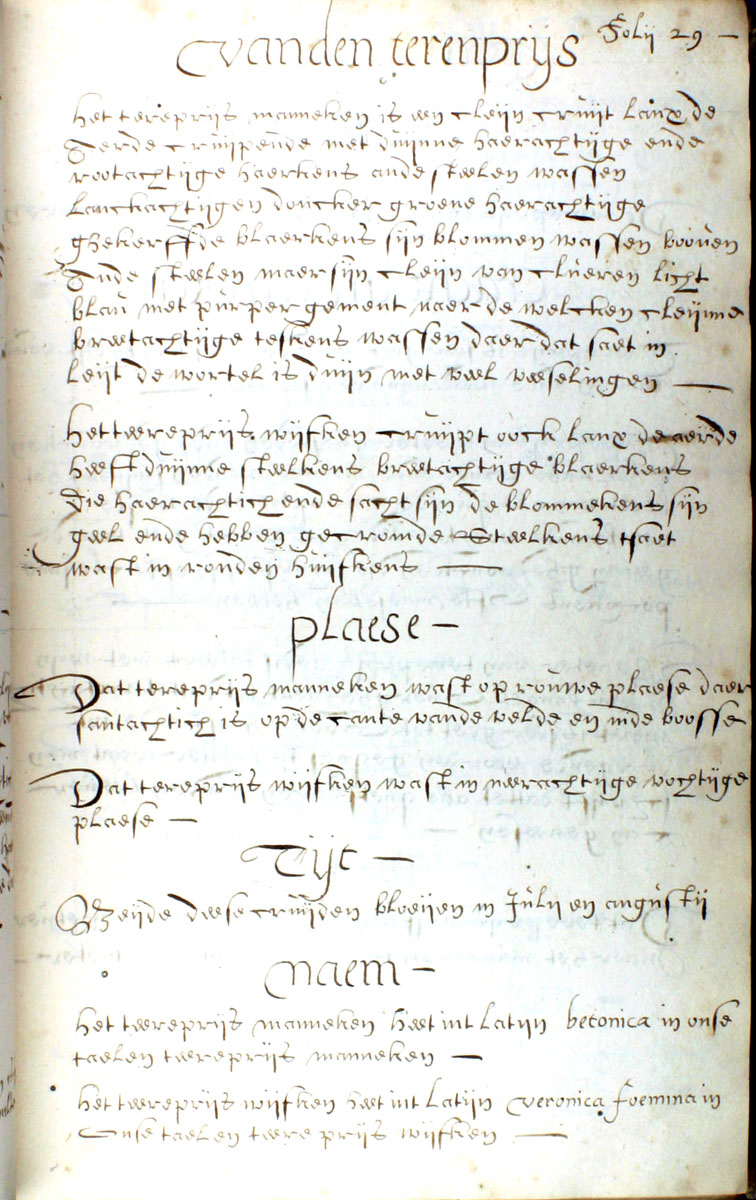 Folij 29 —
vanden terenprijs
het tereprijs manneken is een cleijn cruijt lanx de
Eerde cruijpende met duijnne haerachtijge ende
rootachtijge haerkens ande steelen wassen
lanckachtijgen doncker groene haerachtijge
ghekerffde blaerkens sijn blommen wassen booven
Ande steelen maer sijn cleijn van clueren licht
blau met purper gement naer de welcken cleijnne
breetachtijge teskens wassen daer dat saet in
leijt de wortel is duijn met veel veeselingen —
het teereprijs wijfken cruijpt oock lanx de aerde
heeft duijnne steelkens breetachtijge blaerkens
die haerachtich ende sacht sijn de blommekens sijn
geel ende hebben gecromde Steelkens tsaet
wast in ronden huijfkens —
plaese —
Dat tereprijs manneken wast op rouwe plaese daer
santachtich is op de cante vande velde en inde boosse
Dat tereprijs wijfken wast in neerachtijge vochtijge
plaese —
Tijt —
Beijde deese cruijden bloeijen in Julij en augustij
naem —
het teereprijs manneken heet int Latijn betonica in onse
taelen teereprijs manneken —
het teereprijs wijfken heet int Latijn veronica foemina in
Onse taelen teere prijs wijfken —